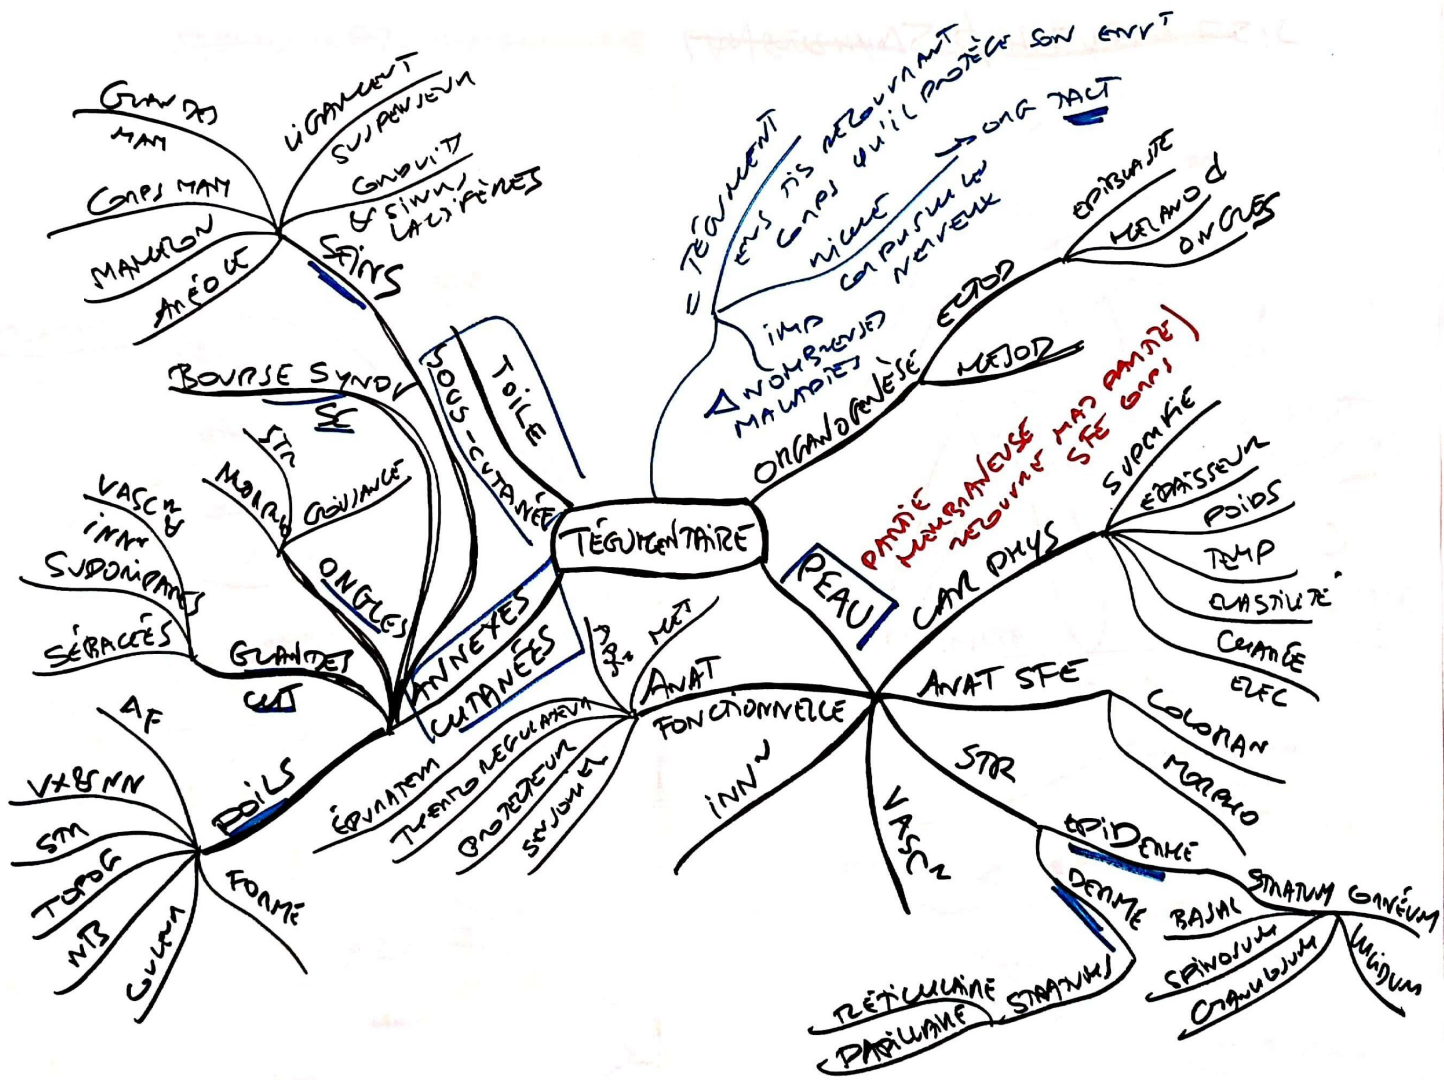 TÉGUMENTAIRE
= TÉGUMENT
ENS TIS RECOUVRANT
CORPS QU'IL PROTÈGE SON ENVT
RICHE
CORPUSCULES
NERVEUX
→ ORG TACT
IMP
Δ NOMBREUSES
MALADIES
ORGANOGENÈSE
ECTOD
EPIBLASTE
MELANO
ONGLES
MESOD
PEAU
PARTIE
MEMBRANEUSE
RECOUVRE MAJ PARTIE
SFE CORPS
CAR PHYS
SUPERFIE
EPAISSEUR
POIDS
TEMP
ELASTICITÉ
CHARGE
ELEC
ANAT SFE
COLORAN
MORPHO
STR
EPIDERME
STRATUM CORNÉUM
BASAL
SPINOSUM
GRANULOSUM
LUCIDUM
DERME
STRATUMS
RÉTICULAIRE
PAPILLAIRE
VASCN
INNN
ANAT
FONCTIONNELLE
MET
ÉPURATEUR
THERMO RÉGULATEUR
PROTECTEUR
SENSORIEL
ANNEXES
CUTANÉES
POILS
ΔF
VX & NN
STR
TOPOG
NB
COULEUR
FORME
GLANDES
CUT
VASCN &
INNN
SUDORIPARES
SÉBACÉES
ONGLES
STR
MORPHO
CROISSANCE
BOURSE SYNOV
SC
SEINS
GLANDES
MAM
CORPS MAM
MAMELON
ARÉOLE
LIGAMENT
SUSPENSEUR
CONDUITS
& SINUS
LACTIFÈRES
TOILE
SOUS-CUTANÉE